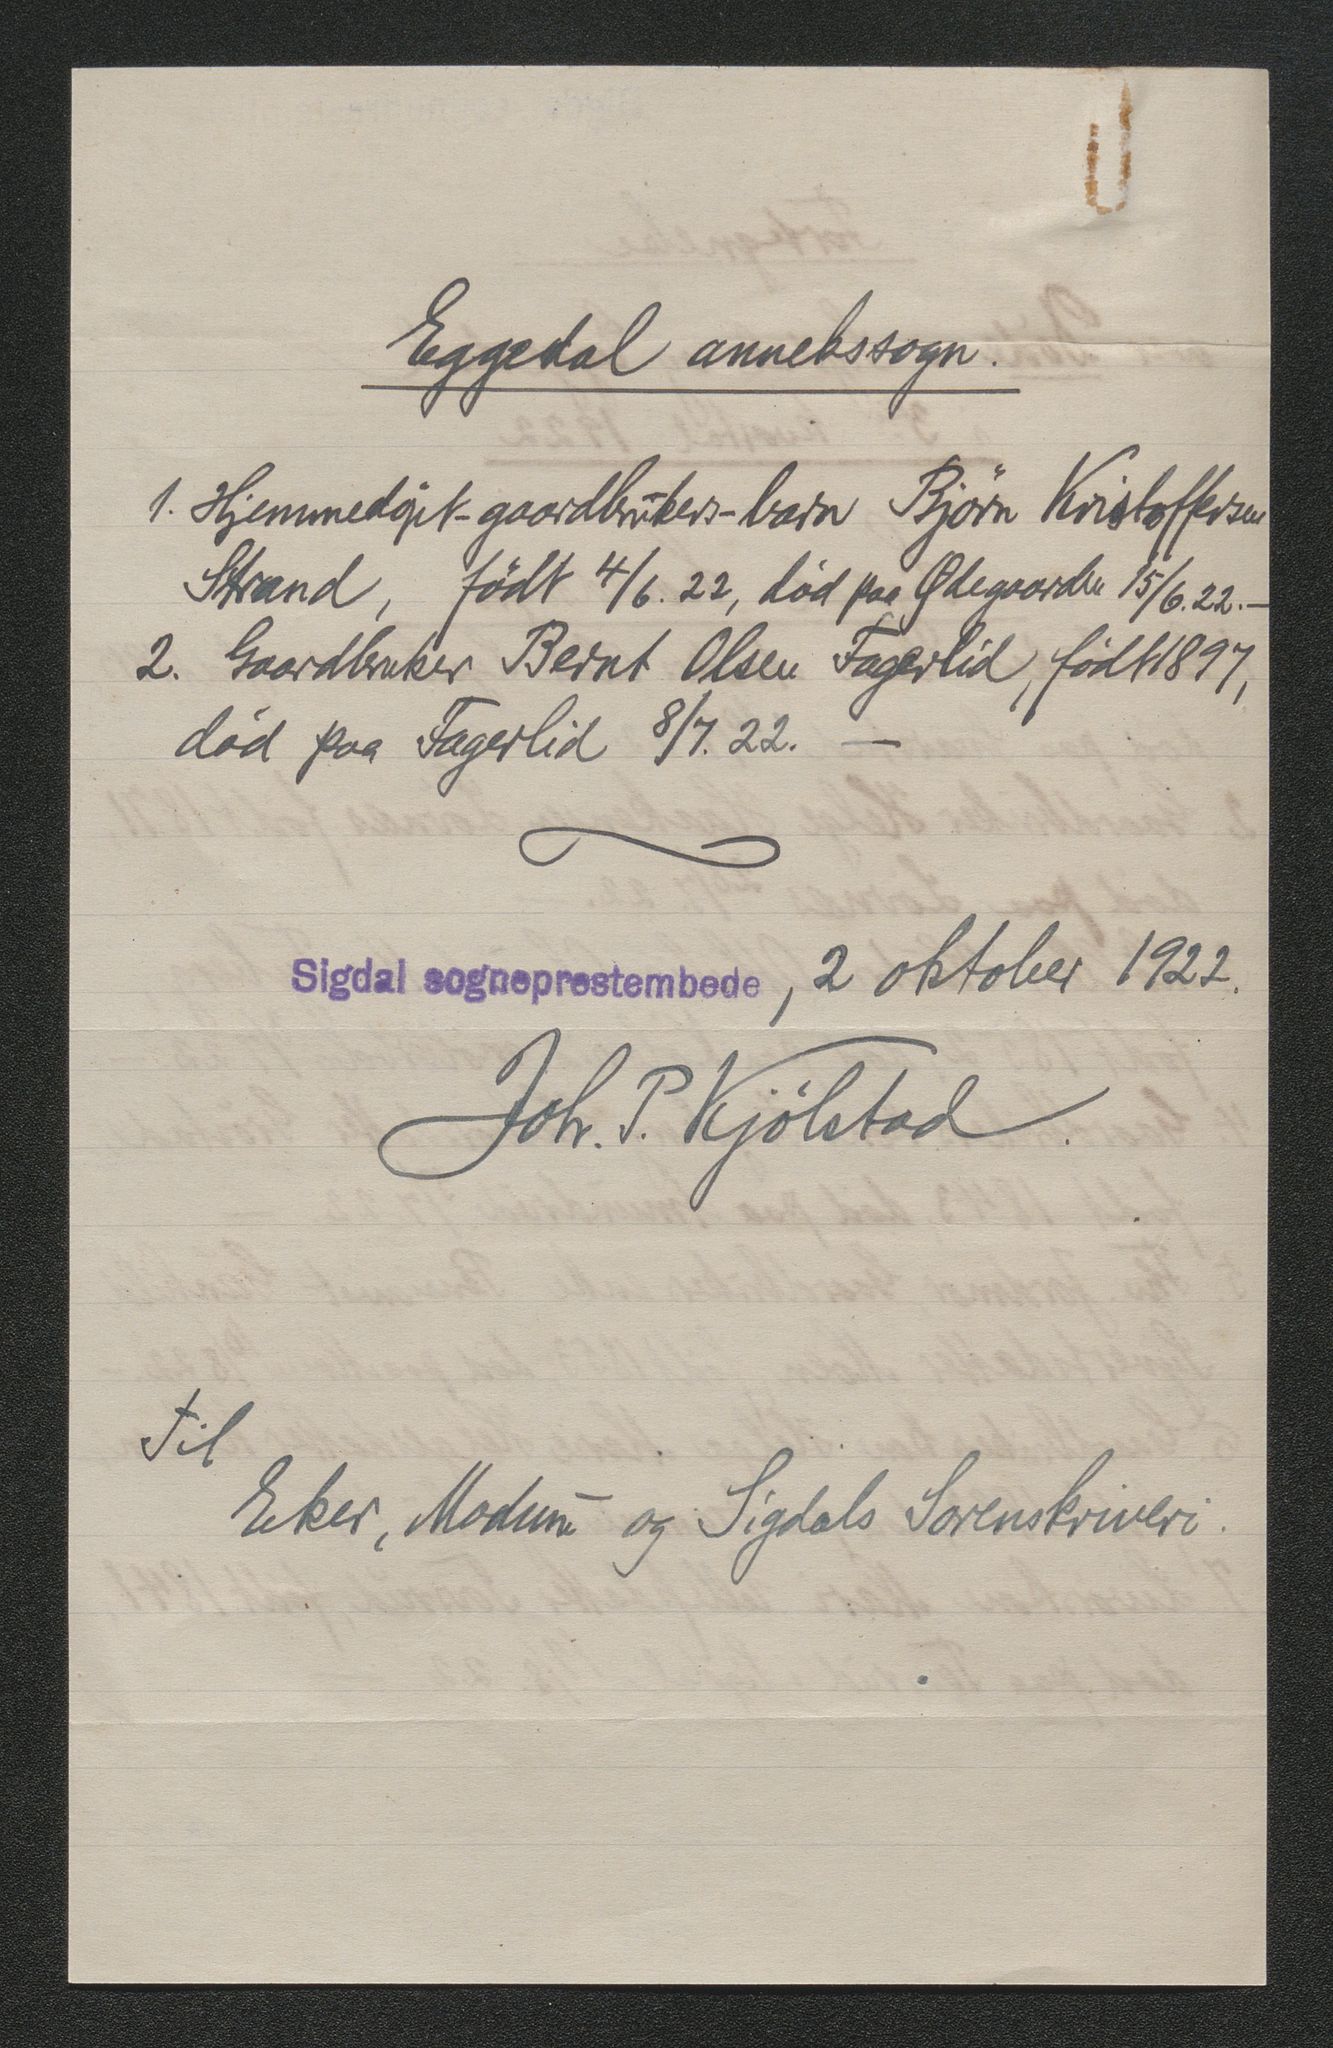 Eggedal annekssogn.
1. Hjemmedöpt gaardbrukers-barn Björn Kristoffersen
Strand, födt 4/6. 22, död paa Ødegaarden 15/6. 22. —
2. Gaardbruker Bernt Olsen Fagerlid, födt 1897,
död paa Fagerlid 8/7. 22. —
Sigdal sogneprestembede, 2 oktober 1922.
Joh. P. Kjölstad.
Til
Eker, Modum og Sigdals Sorenskriveri.